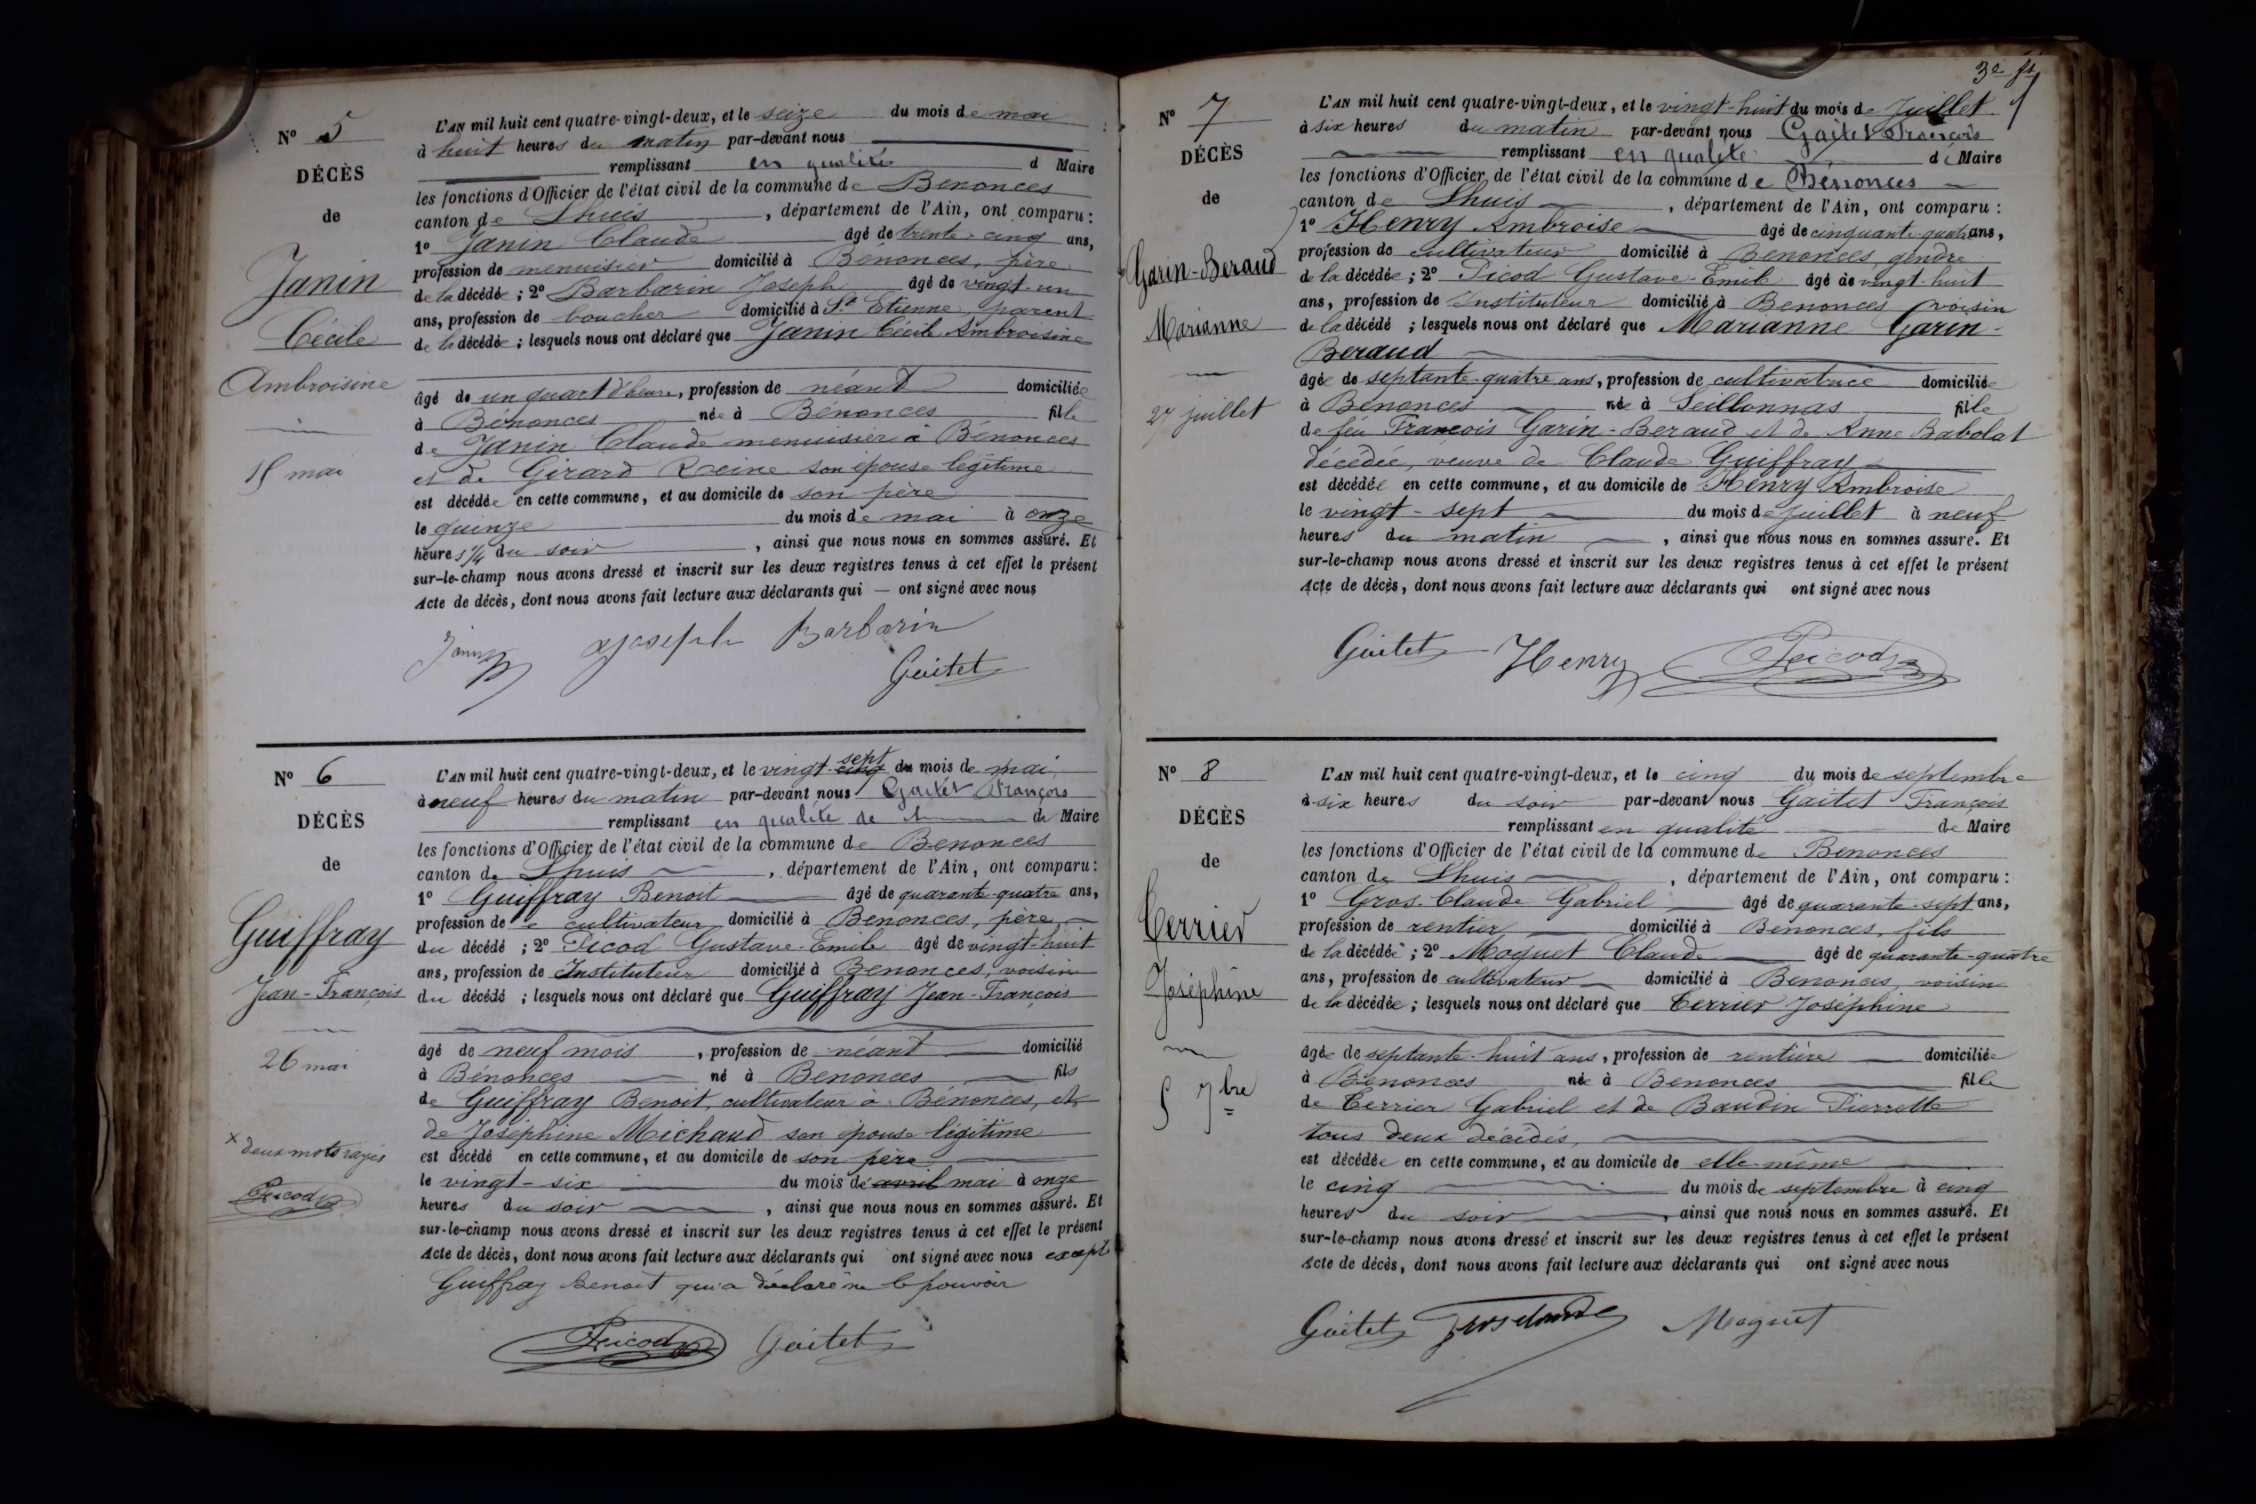 N° 5
DÉCÈS
de
Janin
Cécile
Ambroisine
15 mai
L'AN mil huit cent quatre-vingt-deux, et le seize du mois de mai
à huit heures du matin par-devant nous
remplissant en qualité d Maire
les fonctions d'Officier de l'état civil de la commune de Benonces
canton de Lhuis , département de l'Ain, ont comparu :
1° Janin Claude âgé de trente-cinq ans,
profession de menuisier domicilié à Bénonces, père
de la décédée ; 2° Barbarin Joseph âgé de vingt-un
ans, profession de boucher domicilié à St Etienne, parent
de la décédée ; lesquels nous ont déclaré que Janin Cécile Ambroisine
âgé de un quart d'heure, profession de néant domiciliée
à Bénonces née à Bénonces fille
de Janin Claude menuisier à Bénonces
et de Girard Reine son épouse légitime
est décédée en cette commune, et au domicile de son père
le quinze du mois de mai à onze
heures 1/4 du soir , ainsi que nous nous en sommes assuré. Et
sur-le-champ nous avons dressé et inscrit sur les deux registres tenus à cet effet le présent
Acte de décès, dont nous avons fait lecture aux déclarants qui — ont signé avec nous
Janin Joseph Barbarin
Gaitet
N° 6
DÉCÈS
de
Guiffray
Jean-François
26 mai
x deux mots rayés
Picod
L'AN mil huit cent quatre-vingt-deux, et le vingt-cinq sept du mois de mai
à neuf heures du matin par-devant nous Gaitet François
remplissant en qualité de de Maire
les fonctions d'Officier de l'état civil de la commune de Benonces
canton de Lhuis , département de l'Ain, ont comparu :
1° Guiffray Benoit âgé de quarante-quatre ans,
profession de cultivateur domicilié à Benonces, père
du décédé ; 2° Picod Gustave-Emile âgé de vingt-huit
ans, profession de Instituteur domicilié à Benonces, voisin
du décédé ; lesquels nous ont déclaré que Guiffray Jean-François
âgé de neuf mois , profession de néant domicilié
à Bénonces né à Benonces fils
de Guiffray Benoit, cultivateur à Bénonces, et
de Joséphine Michaud son épouse légitime
est décédé en cette commune, et au domicile de son père
le vingt-six du mois de avril mai à onze
heures du soir , ainsi que nous nous en sommes assuré. Et
sur-le-champ nous avons dressé et inscrit sur les deux registres tenus à cet effet le présent
Acte de décès, dont nous avons fait lecture aux déclarants qui ont signé avec nous excepté
Guiffray Benoit qui a déclaré ne le pouvoir
Picod Gaitet
3e ft
N° 7
DÉCÈS
de
Garin-Beraud
Marianne
27 juillet
L'AN mil huit cent quatre-vingt-deux, et le vingt-huit du mois de Juillet
à six heures du matin par-devant nous Gaitet François
remplissant en qualité de Maire
les fonctions d'Officier de l'état civil de la commune de Bénonces
canton de Lhuis , département de l'Ain, ont comparu :
1° Henry Ambroise âgé de cinquante-quatre ans,
profession de cultivateur domicilié à Benonces, gendre
de la décédée ; 2° Picod Gustave-Emile âgé de vingt-huit
ans, profession de Instituteur domicilié à Benonces voisin
de la décédé ; lesquels nous ont déclaré que Marianne Garin-
Beraud
âgée de septante-quatre ans, profession de cultivatrice domiciliée
à Benonces née à Seillonnas fille
de feu François Garin-Beraud et de Anne Babolat
décédée, veuve de Claude Guiffray
est décédée en cette commune, et au domicile de Henry Ambroise
le vingt-sept du mois de juillet à neuf
heures du matin , ainsi que nous nous en sommes assuré. Et
sur-le-champ nous avons dressé et inscrit sur les deux registres tenus à cet effet le présent
Acte de décès, dont nous avons fait lecture aux déclarants qui ont signé avec nous
Gaitet Henry Picod
N° 8
DÉCÈS
de
Terrier
Joséphine
5 7bre
L'AN mil huit cent quatre-vingt-deux, et le cinq du mois de septembre
à six heures du soir par-devant nous Gaitet François
remplissant en qualité de Maire
les fonctions d'Officier de l'état civil de la commune de Benonces
canton de Lhuis , département de l'Ain, ont comparu :
1° Gros-Claude Gabriel âgé de quarante-sept ans,
profession de rentier domicilié à Benonces, fils
de la décédée ; 2° Moguet Claude âgé de quarante-quatre
ans, profession de cultivateur domicilié à Benonces, voisin
de la décédée ; lesquels nous ont déclaré que Terrier Joséphine
âgée de septante-huit ans, profession de rentière domiciliée
à Benonces née à Benonces fille
de Terrier Gabriel et de Baudin Pierrette
tous deux décédés,
est décédée en cette commune, et au domicile de elle-même
le cinq du mois de septembre à cinq
heures du soir , ainsi que nous nous en sommes assuré. Et
sur-le-champ nous avons dressé et inscrit sur les deux registres tenus à cet effet le présent
Acte de décès, dont nous avons fait lecture aux déclarants qui ont signé avec nous
Gaitet Grosclaude Moguet